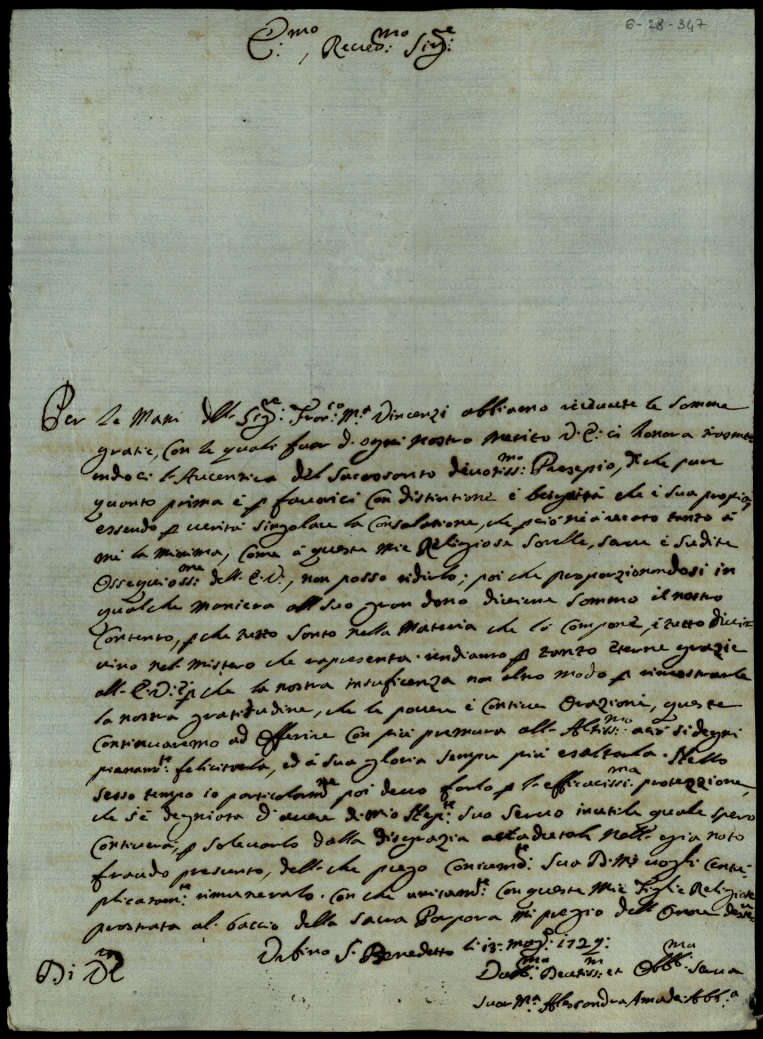 6-28-347
E:mo, Revedmo: Sigre:
Per le Mani dell Sigre: Franco: Ma Vincenzi abbiamo riceuute le somme
gratie, con le quali fuor d. ogni nostro merito V. E: ci honora
ndoci l'Autentica del Sacrosanto deuotiss:mo Presepio, che pure
quanto prima è p fauorirci con distintione è benignità che è sua propria
essendo p uerità singolare la Consolatione, che à tanto à
mè la minima, come à queste mie Religiose Sorelle, serue è sudite
Ossequioss:me dell E.V., non posso ridirlo; poi che proporzionandosi in
qualche maniera all suo gran dono diuiene sommo il nostro
Contento, p che tutto Santo nella Materia che lo Compone, è tutto diui
uino nel mistero che rapresenta. rendiamo p tanto Eterne grazie
all E.V. p che la nostra insuficenza non altro modo p rimostrarle
la nostra gratitudine, che le pouere è Continue Orazioni, queste
Continuaremo ad Offerire con più premura alla Altiss:mo acciò si degni
pienamte: felicitarla, ed à sua gloria sempre più esaltarla. Nello
sesso tempo io particolarmte poi deuo farlo p l'efficacissi:ma protezzione,
che s'è degniata d'auere di mio suo Seruo inutile quale spero
Continerà, p soleuarlo dalla disgrazia nota
fraudo presunto, della che priego sua D. Mà uogli Centu
plicatamte rimunerarlo. Con che unitamte con queste mie Figlie Religiose
prostrata al baccio della Sacra Porpora mi pregio dell Onore
Di V E
Urbino S. Benedetto li 13: mago: 1729:
Deuotiss: et Obb:ma Serua
Suor Ma Alessandra Amadei Abb:a